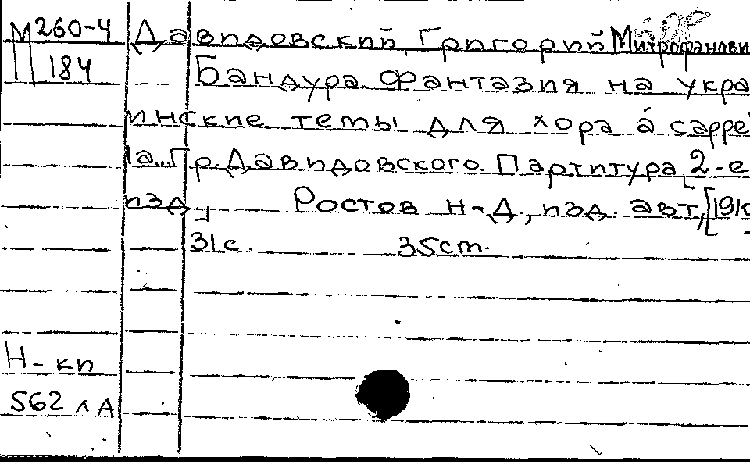 М260-4 Давидовский Григорий Митрофанови
II 184 Бандура фантазия на укра
инские темы для хора a cappe
la. Гр. Давидовского. Партитура [2-е
изд.] Ростов н-Д, изд. авт,
31с. 35cm.
Н-кп
562 л А